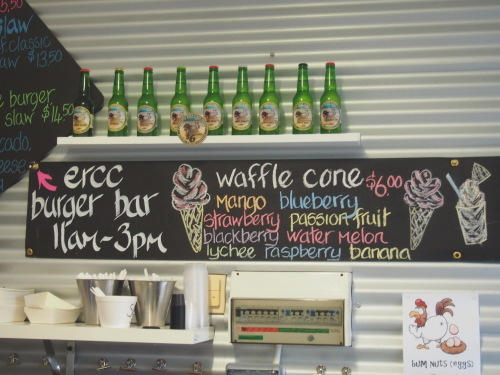 5.50
slaw
f classic
aw $13.50
burger
slaw $14.50
cado,
eese
ercc
burger bar
11am-3pm
waffle cone $6.00
mango blueberry
strawberry passionfruit
blackberry water melon
lychee raspberry banana
bum nuts (eggs)